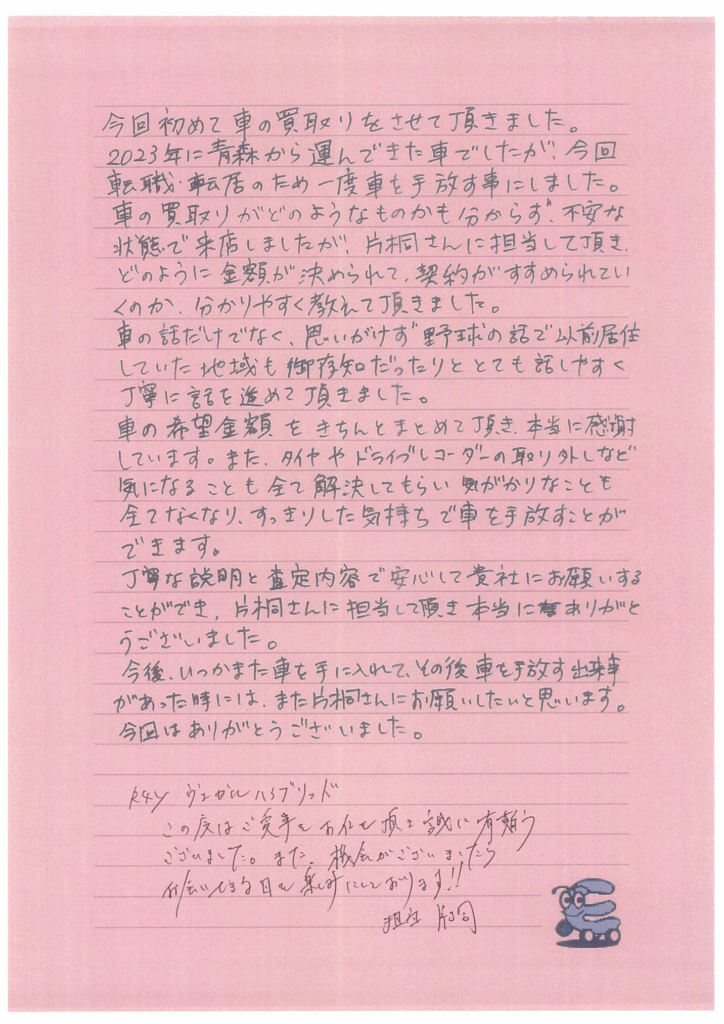 今回初めて車の買取りをさせて頂きました。
2023年に青森から運んできた車でしたが、今回
転職・転居のため一度車を手放す事にしました。
車の買取りがどのようなものかも分からず、不安な
状態で来店しましたが、片桐さんに担当して頂き、
どのように金額が決められて、契約がすすめられてい
くのか、分かりやすく教えて頂きました。
車の話だけでなく、思いがけず野球の話で以前居住
していた地域も御存知だったりととても話しやすく
丁寧に話を進めて頂きました。
車の希望金額をきちんとまとめて頂き、本当に感謝
しています。また、タイヤやドライブレコーダーの取り外しなど
気になることも全て解決してもらい気がかりなことも
全てなくなり、すっきりした気持ちで車を手放すことが
できます。
丁寧な説明と査定内容で安心して貴社にお願いする
ことができ、片桐さんに担当して頂き本当にありがと
うございました。
今後、いつかまた車を手に入れて、その後車を手放す出来事
があった時には、また片桐さんにお願いしたいと思います。
今回はありがとうございました。
R4y ヴェゼルハイブリッド
この度はご愛車をお任せ頂き誠に有難う
ございました。また、機会がございましたら
お会いできる日を楽しみにしております!!
担当 片桐